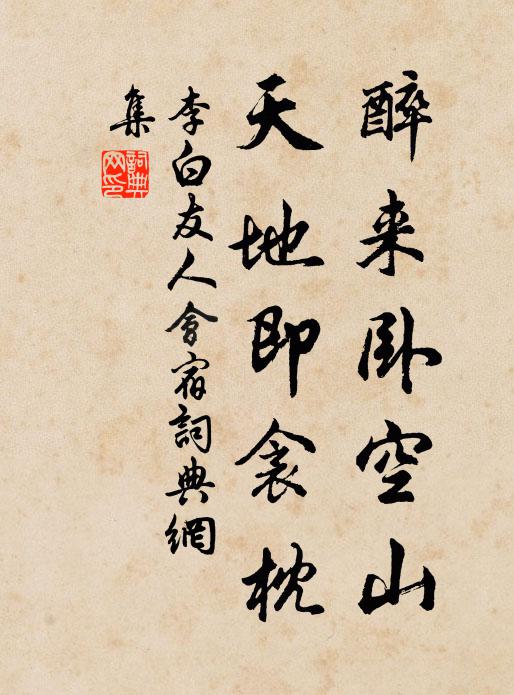 醉来卧空山
天地即衾枕
李白友人會宿詞典網
集
詞典网印